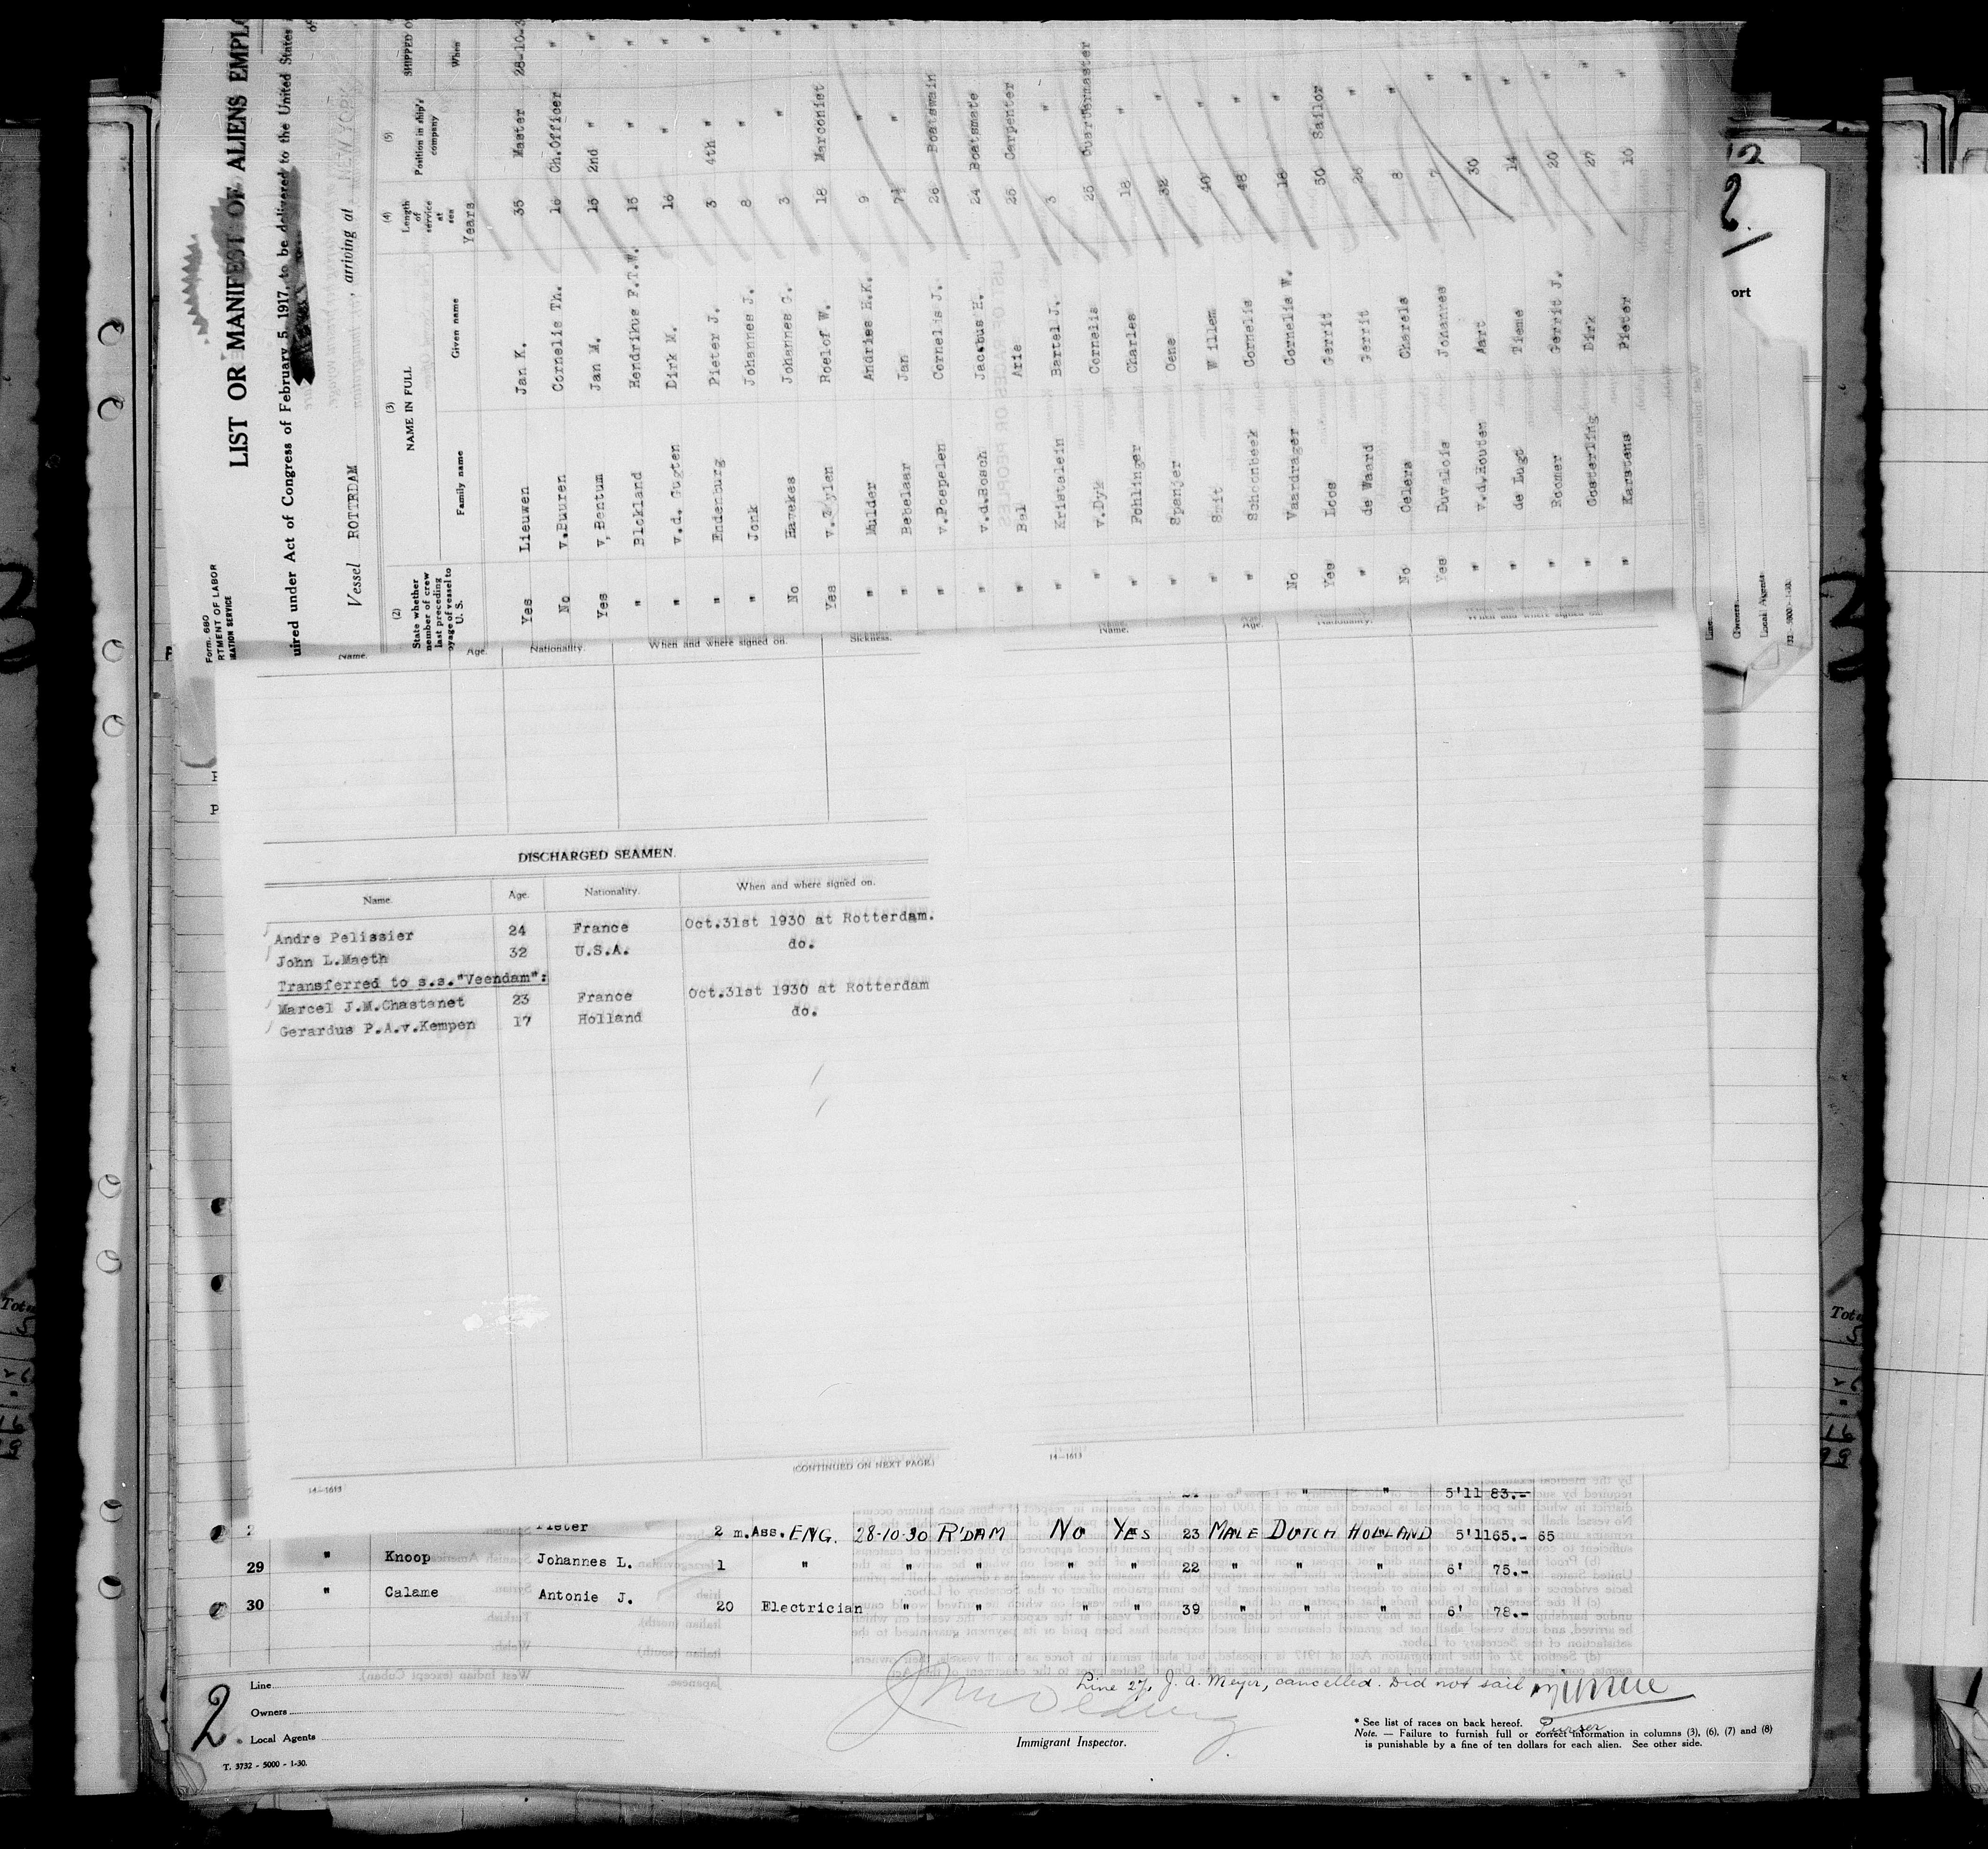 Form 680
RTMENT OF LABOR
RATION SERVICE
LIST OR MANIFEST OF ALIENS EMPLO
uired under Act of Congress of February 5, 1917, to be delivered to the United States
Vessel ROTTERDAM , arriving at NEW YORK
(2) (3) (4) (5)
State whether member of crew last preceding voyage of vessel to U. S.
NAME IN FULL
Family name Given name
Length of service at sea
Position in ship's company
SHIPPED O
When
Years
Yes Lieuwen Jan K. 35 Master 28-10-3
No v.Buuren Cornelis Th. 16 Ch.Officer "
Yes v.Bentum Jan M. 15 2nd " "
" Blokland Hendrikus F.T.W. 15 " "
" v.d. Gugten Dirk M. 16 " "
" Endenburg Pieter J. 3 4th " "
" Jonk Johannes J. 8 " "
No Havekes Johannes G. 3 " "
Yes v.Zylen Roelof W. 18 Marconist "
" Mulder Andries H.K. 9 " "
" Bebelaar Jan 7½ "
" v.Poepelen Cornelis J. 26 Boatswain
" v.d.Bosch Jacobus H. 24 Boatsmate
" Bal Arie 25 Carpenter
" Kristalein Bartel J. 3 "
" v.Dyk Cornelis 25 Quartermaster
" Pohlinger Charles 18 "
" Spanjer Oene 32 "
" Smit Willem 40 "
" Schoonbeek Cornelis 48 "
No Vaardrager Cornelis W. 18 "
Yes Loos Gerrit 50 Sailor
" de Waard Gerrit 26 "
No Oelers Charels 8 "
Yes Duvalois Johannes 7 "
" v.d.Houten Aart 30 "
" de Lugt Tieme 14 "
" Roomer Gerrit J. 20 "
" Oosterling Dirk 27 "
" Karstens Pieter 10 "
Name. Age. Nationality. When and where signed on. Sickness.
Name. Age. Nationality.
DISCHARGED SEAMEN.
Name. Age. Nationality. When and where signed on.
Andre Pelissier 24 France Oct.31st 1930 at Rotterdam.
John L.Maeth 32 U.S.A. do.
Transferred to s.s."Veendam":
Marcel J.M.Chastanet 23 France Oct.31st 1930 at Rotterdam
Gerardus P.A.v.Kempen 17 Holland do.
(CONTINUED ON NEXT PAGE)
14—1613
14—1613
" " 5'11 83.-
Pieter 2 m.Ass. ENG. 28-10-30 R'DAM NO YES 23 MALE DUTCH HOLLAND 5'11 65.- 65
29 " Knoop Johannes L. 1 " " " " " 22 " " " 6' 75.-
30 " Calame Antonie J. 20 Electrician " " " " 39 " " " 6' 78.-
Line
Owners
Local Agents
2
T. 3732 - 5000 - 1-30.
Line 27, J. A. Meyer, cancelled. Did not sail
Purser
Immigrant Inspector.
* See list of races on back hereof.
Note. — Failure to furnish full or correct information in columns (3), (6), (7) and (8)
is punishable by a fine of ten dollars for each alien. See other side.
2
ort
Line
Owners
Local Agents
Tot